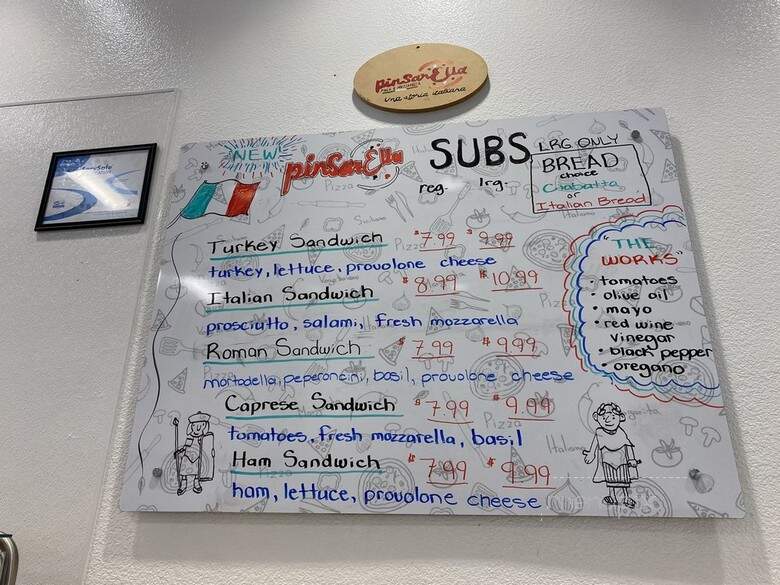 pinsarElla
una storia italiana
NEW pinsarElla SUBS
LRG ONLY
reg. lrg.
BREAD
choice
Ciabatta
or
Italian Bread
Turkey Sandwich $7.99 $9.99
turkey, lettuce, provolone cheese
Italian Sandwich $8.99 $10.99
prosciutto, salami, fresh mozzarella
Roman Sandwich $7.99 $9.99
mortadella, peperoncini, basil, provolone cheese
Caprese Sandwich $7.99 $9.99
tomatoes, fresh mozzarella, basil
Ham Sandwich $7.99 $9.99
ham, lettuce, provolone cheese
"THE
WORKS"
• tomatoes
• olive oil
• mayo
• red wine
vinegar
• black pepper
• oregano